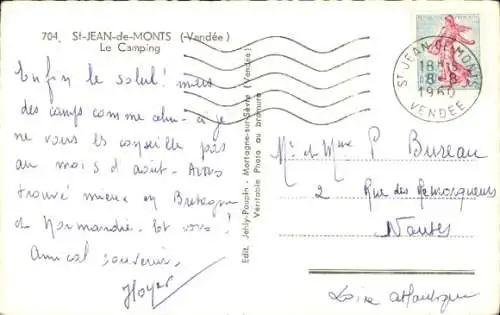 704. St-JEAN-de-MONTS (Vendée)
Le Camping
Enfin le soleil! mais
des camps comme celui-ci je
ne vous les conseille pas
au mois d'aout. Avons
trouvé mieux en Bretagne
et Normandie. Et vous?
Amical souvenir.
Hoyer
Edit. Jehly-Poupin - Mortagne-sur-Sèvre (Vendée)
Véritable Photo au bromure
ST JEAN DE MONTS
18H15
8-8
1960
VENDEE
Mr et Mme P Bureau
2 Rue des Remorqueurs
Nantes
Loire Atlantique